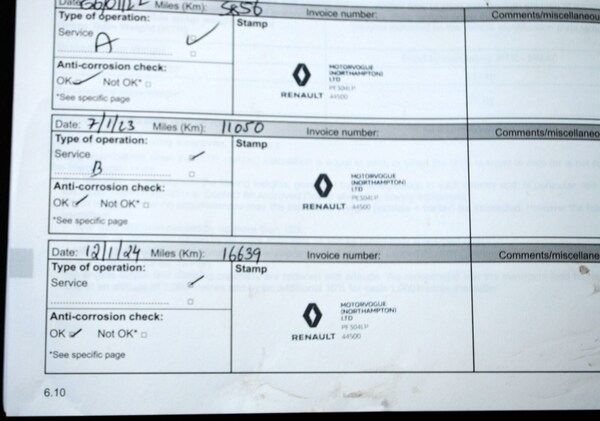 Miles (Km): 5856 Invoice number: Comments/miscellaneou
Type of operation: Stamp
Service
A
Anti-corrosion check:
OK Not OK*
*See specific page
MOTORVOGUE
(NORTHAMPTON)
LTD
44500
RENAULT
Date: 7/1/23 Miles (Km): 11050 Invoice number: Comments/miscellane
Type of operation: Stamp
Service
B
Anti-corrosion check:
OK Not OK*
*See specific page
MOTORVOGUE
(NORTHAMPTON)
LTD
44500
RENAULT
Date: 12/1/24 Miles (Km): 16639 Invoice number: Comments/miscellane
Type of operation: Stamp
Service
Anti-corrosion check:
OK Not OK*
*See specific page
MOTORVOGUE
(NORTHAMPTON)
LTD
44500
RENAULT
6.10